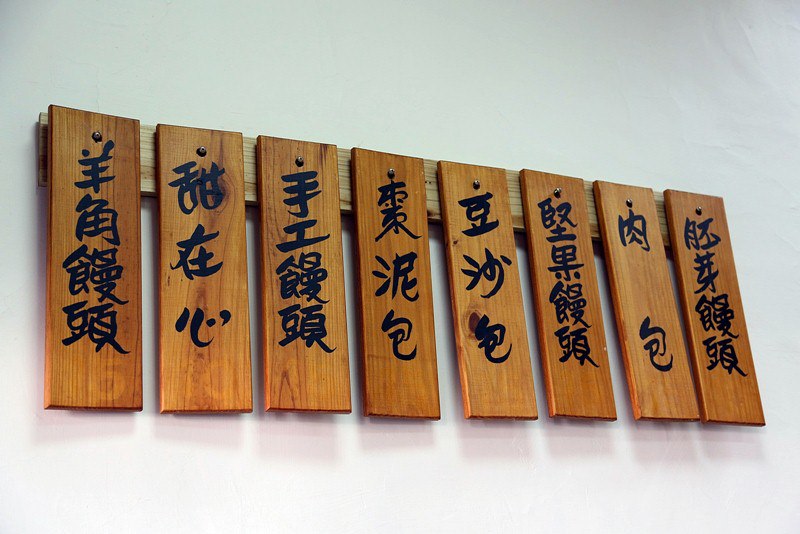 羊角饅頭
甜在心
手工饅頭
棗泥包
豆沙包
堅果饅頭
肉包
胚芽饅頭